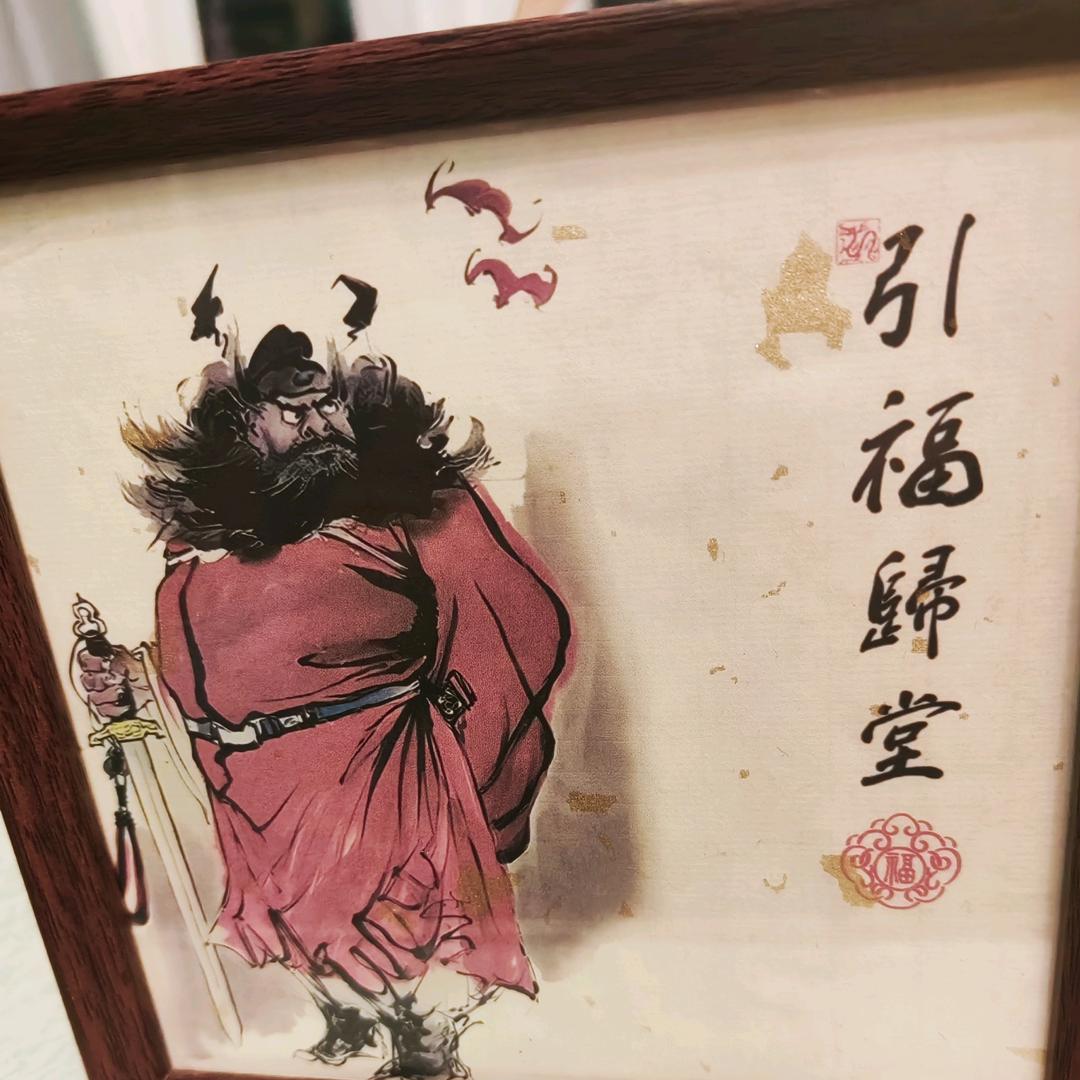 引福歸堂
福